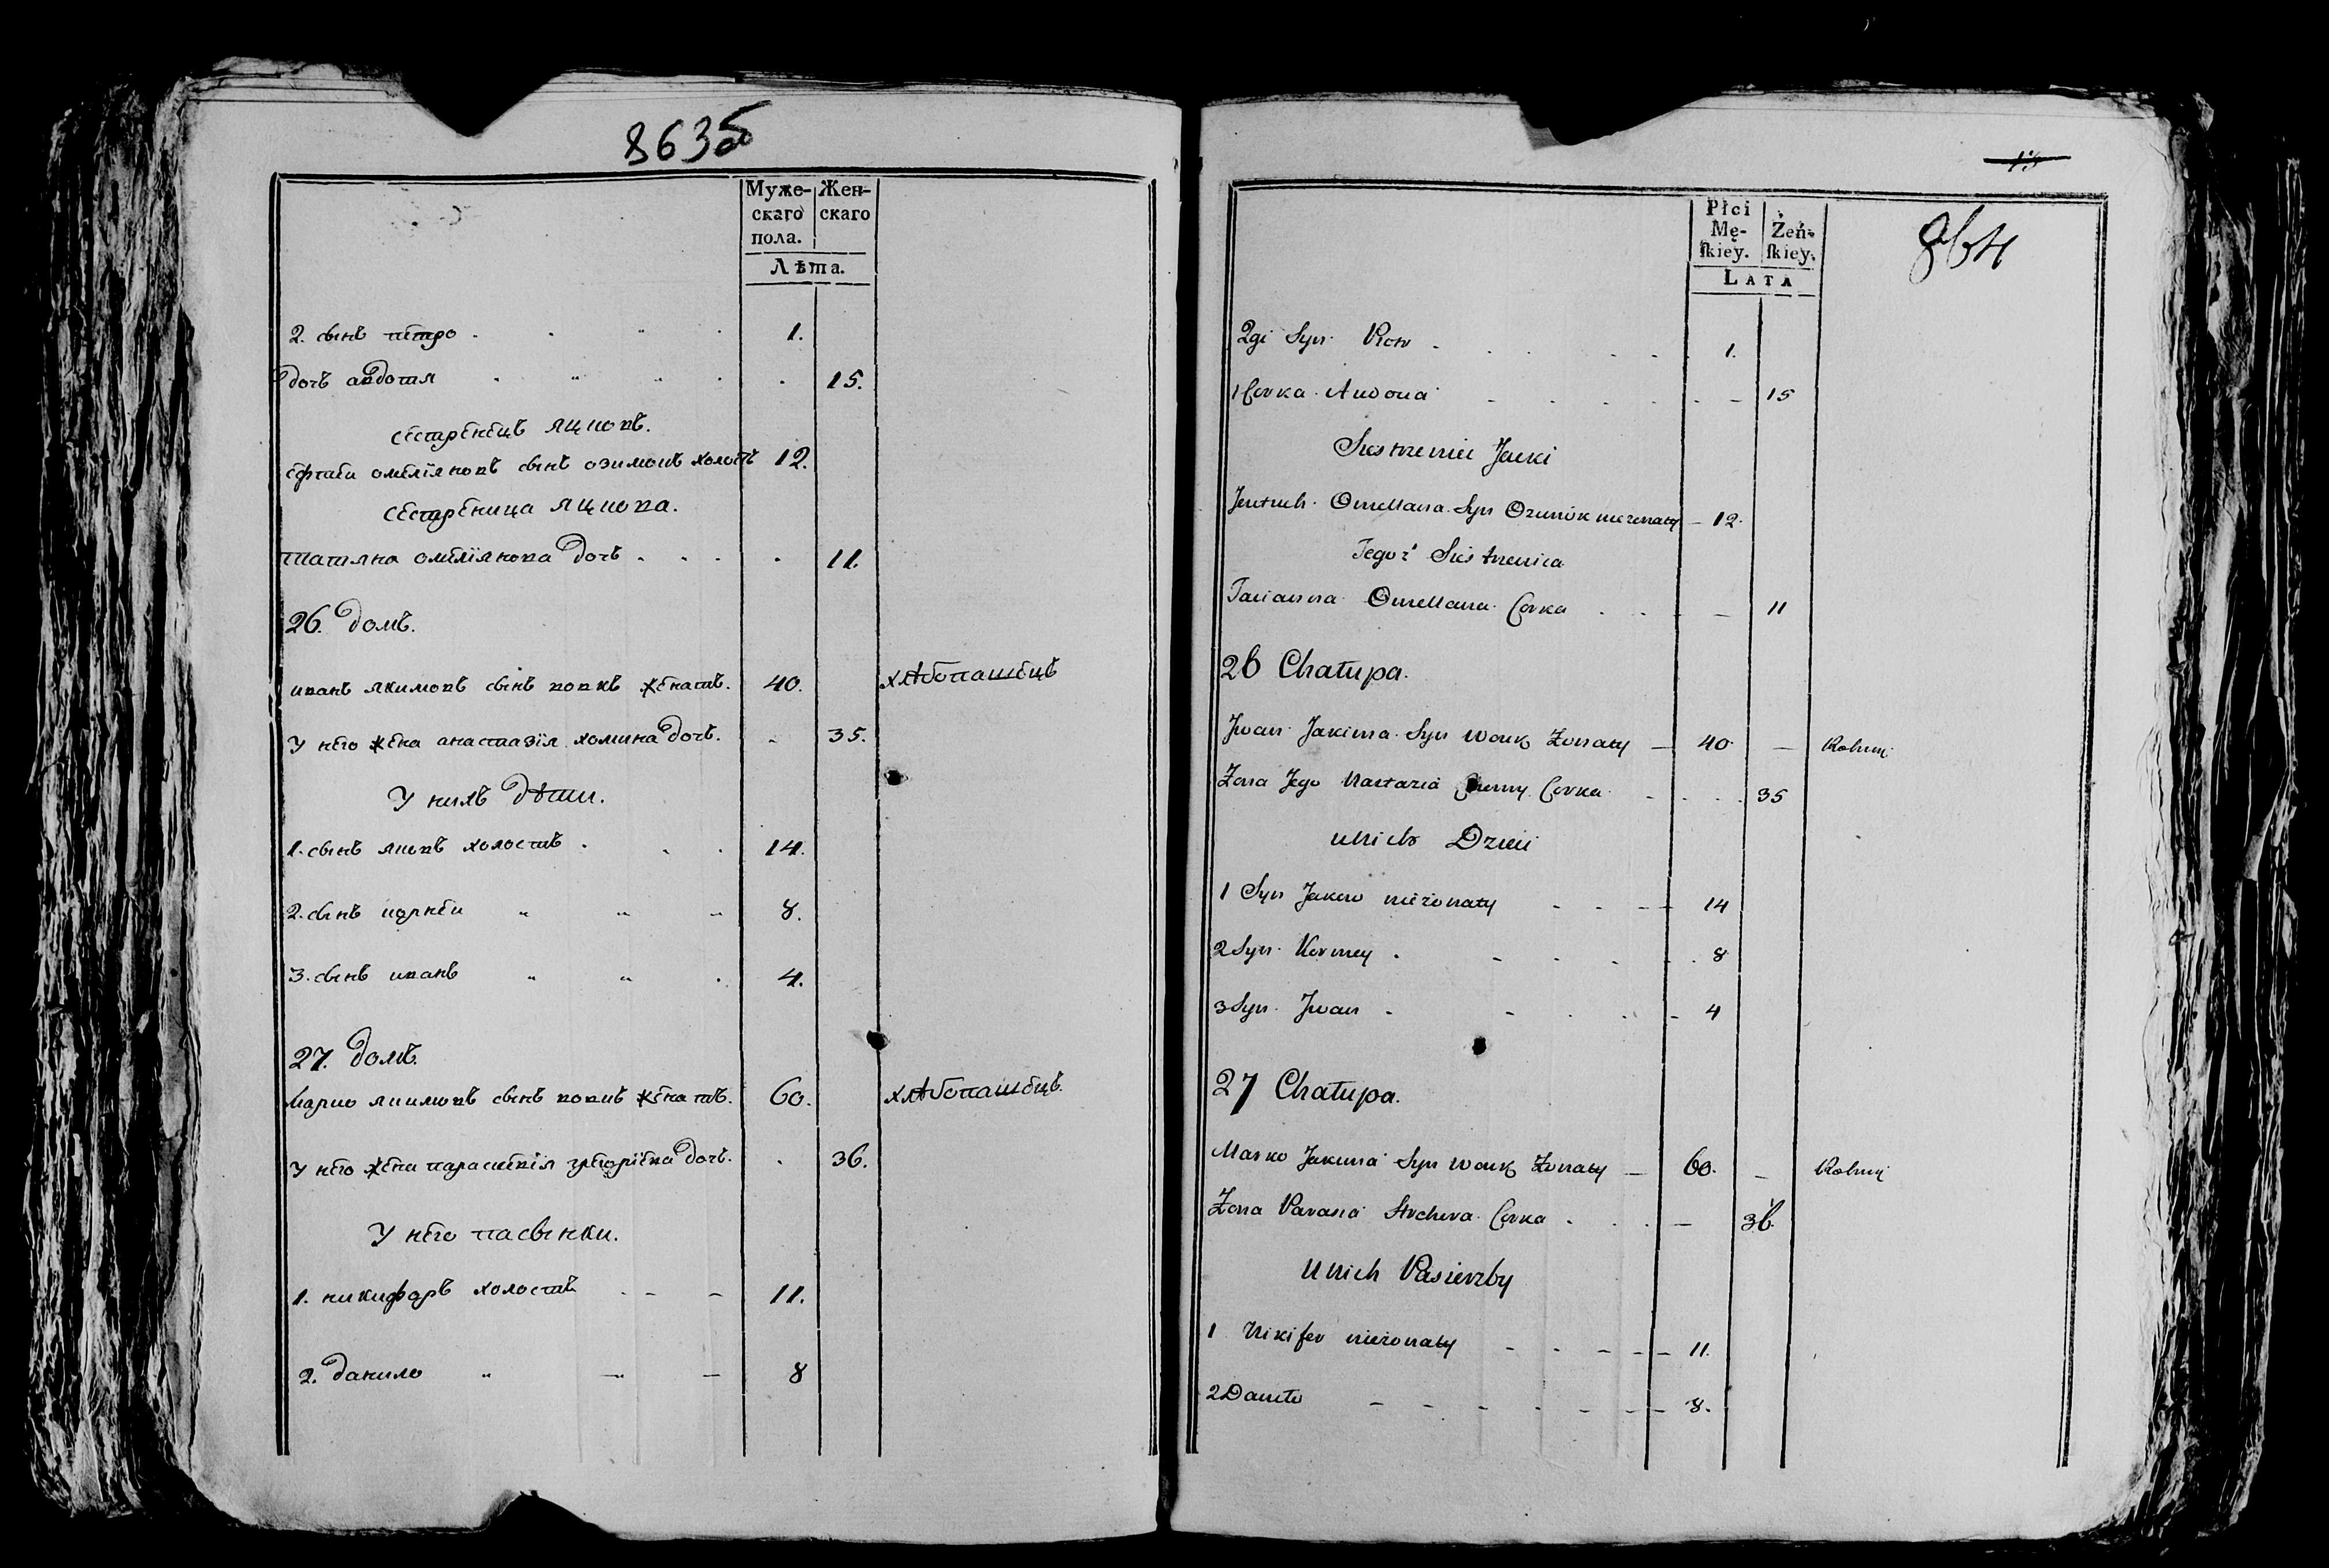 863б
Муже- Жен-
скаго скаго
пола.
Лѣта.
2. сынъ петро 1.
дочь авдотя 15.
сестренецъ яцковъ.
омелїяновъ сынъ озимокъ холостъ 12.
сестреница яцкова.
татяна омелїянова дочь 11.
26. домъ.
иванъ якимовъ сынъ вовкъ женатъ. 40. хлѣбопашецъ
у него жена анастазїя хомина дочь. 35.
У нихъ дѣти.
1. сынъ яковъ холостъ 14.
2. сынъ корней 8.
3. сынъ иванъ 4.
27. домъ.
Марко якимовъ сынъ вовкъ женатъ. 60. хлѣбопашецъ.
у него жена параскевїя дочь. 36.
У него пасынки.
1. никифоръ холостъ 11.
2. данило 8
15
864
Płci
Mę- Żeń-
ſkiey. ſkiey.
LATA
2gi Syn Piotr 1.
1 Corka Audotia 15
Siestrzeniec Jacki
Omeliana Syn Ozimok nieżonaty 12.
Tegoż Siestrzenica
Tacianna Omeliana Corka 11
26 Chałupa.
Jwan Jakima Syn Wouk Żonaty 40. Rolnik
Żona Jego Nastazia Corka 35
U Nich Dzieci
1 Syn Jakow nieżonaty 14
2 Syn Korney 8
3 Syn Jwan 4
27 Chałupa.
Marko Jakima Syn Wouk Żonaty 60. Rolnik
Żona Parasia Corka 36.
U Nich Pasierzby
1 Nikifor nieżonaty 11.
2 Daniło 8.